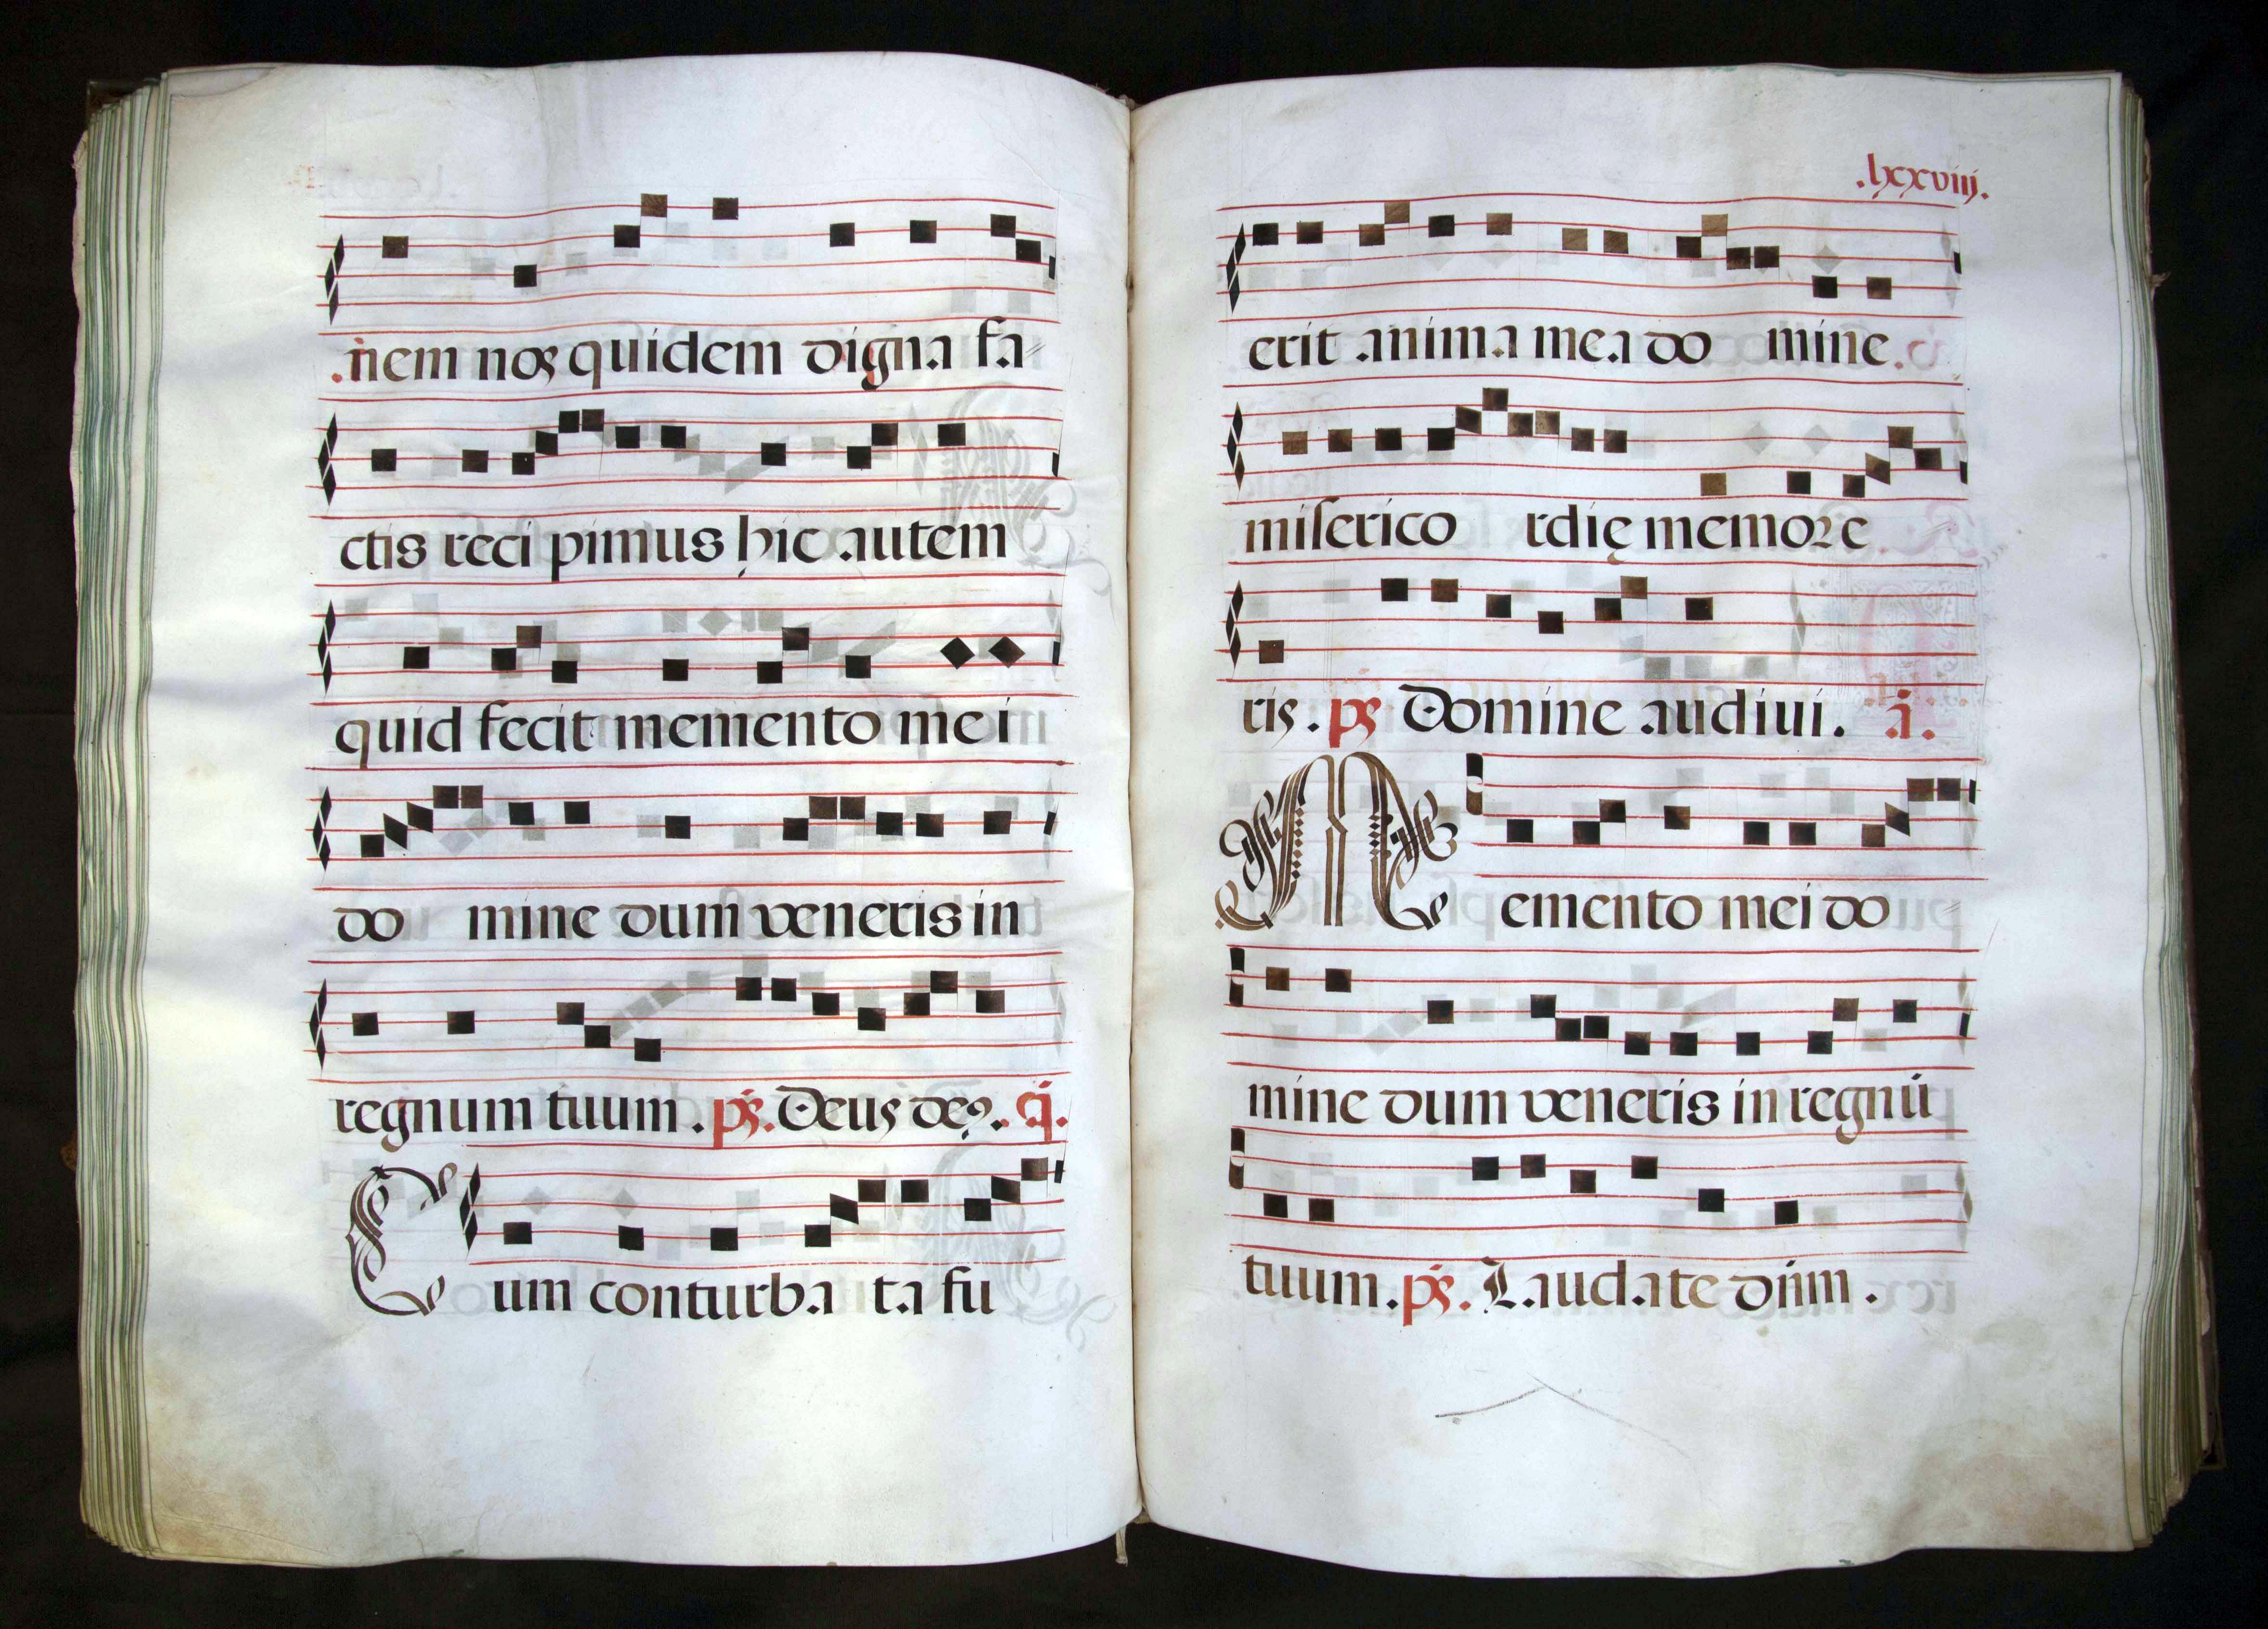 .ñem nos quidem digna fa
ctis reci pimus hic autem
quid fecit memento me i
do mine dum veneris in
regnum tuum . ps. Deus deꝯ. ā.
Cum conturba ta fu
.lxxviij.
erit anima mea do mine.
miserico rdię memore
ris . ps Domine audiui. ā.
Memento mei do
mine dum veneris in regnū
tuum . ps. Laudate dn̄m .